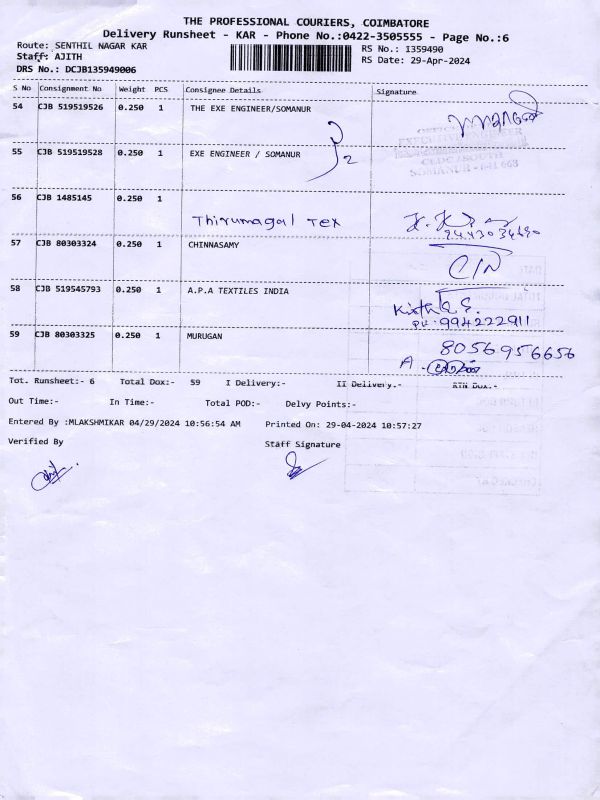 THE PROFESSIONAL COURIERS, COIMBATORE
Delivery Runsheet - KAR - Phone No.:0422-3505555 - Page No.:6
Route: SENTHIL NAGAR KAR
RS No.: 1359490
Staff: AJITH
RS Date: 29-Apr-2024
DRS No.: DCJB135949006
S No Consignment No Weight PCS Consignee Details Signature
54 CJB 519519526 0.250 1 THE EXE ENGINEER/SOMANUR
55 CJB 519519528 0.250 1 EXE ENGINEER / SOMANUR
2
SOMANUR - 641 668
56 CJB 1485145 0.250 1
Thirumagal Tex
57 CJB 80303324 0.250 1 CHINNASAMY
58 CJB 519545793 0.250 1 A.P.A TEXTILES INDIA
PH: 994222911
59 CJB 80303325 0.250 1 MURUGAN
8056956656
Tot. Runsheet:- 6 Total Dox:- 59 I Delivery:- II Delivery.- RTN Dox.-
Out Time:- In Time:- Total POD:- Delvy Points:-
Entered By :MLAKSHMIKAR 04/29/2024 10:56:54 AM Printed On: 29-04-2024 10:57:27
Verified By Staff Signature